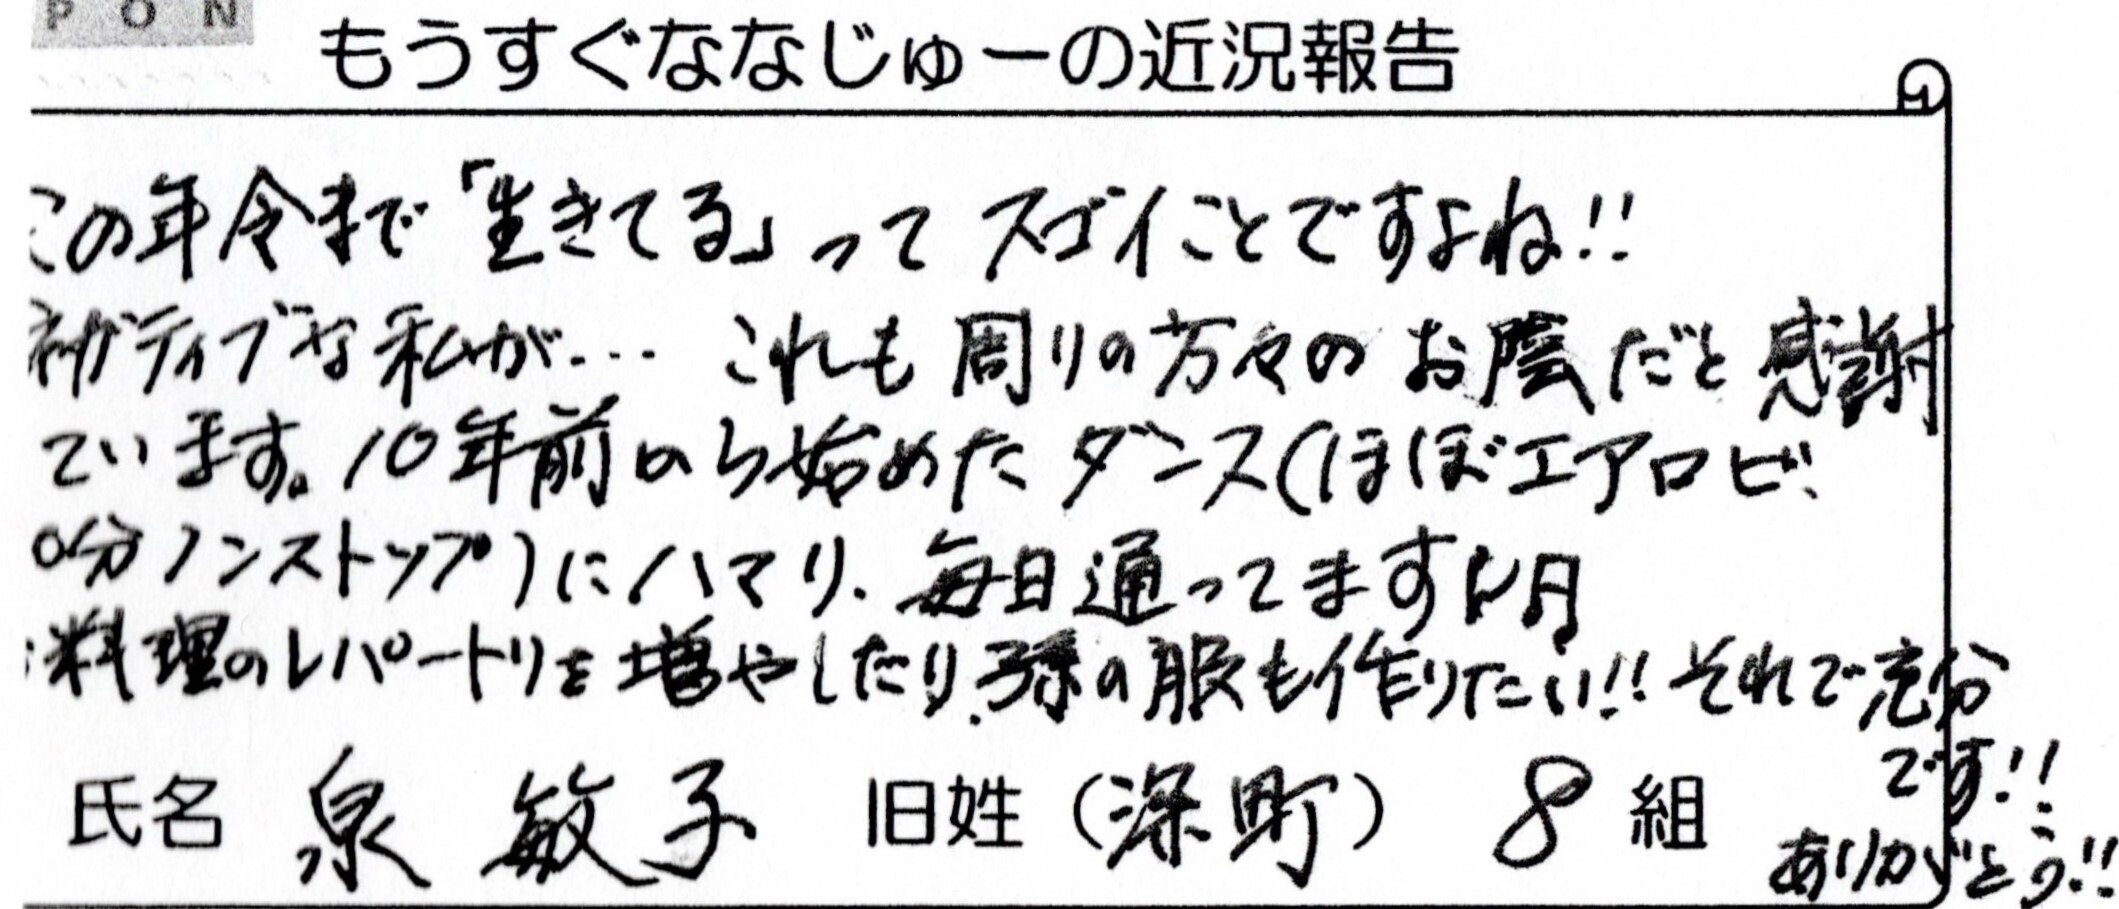 PON
もうすぐななじゅーの近況報告
この年令まで「生きてる」って スゴイことですよね!!
ネガティブな私が… これも周りの方々のお陰だと感謝
ています。10年前から始めたダンス(ほぼエアロビ
0分ノンストップ)にハマり、毎日通ってます
料理のレパートリを増やしたり、孫の服も作りたい!! それで充分
です!!
氏名 泉 敏子 旧姓(深町) 8組
ありがとう!!